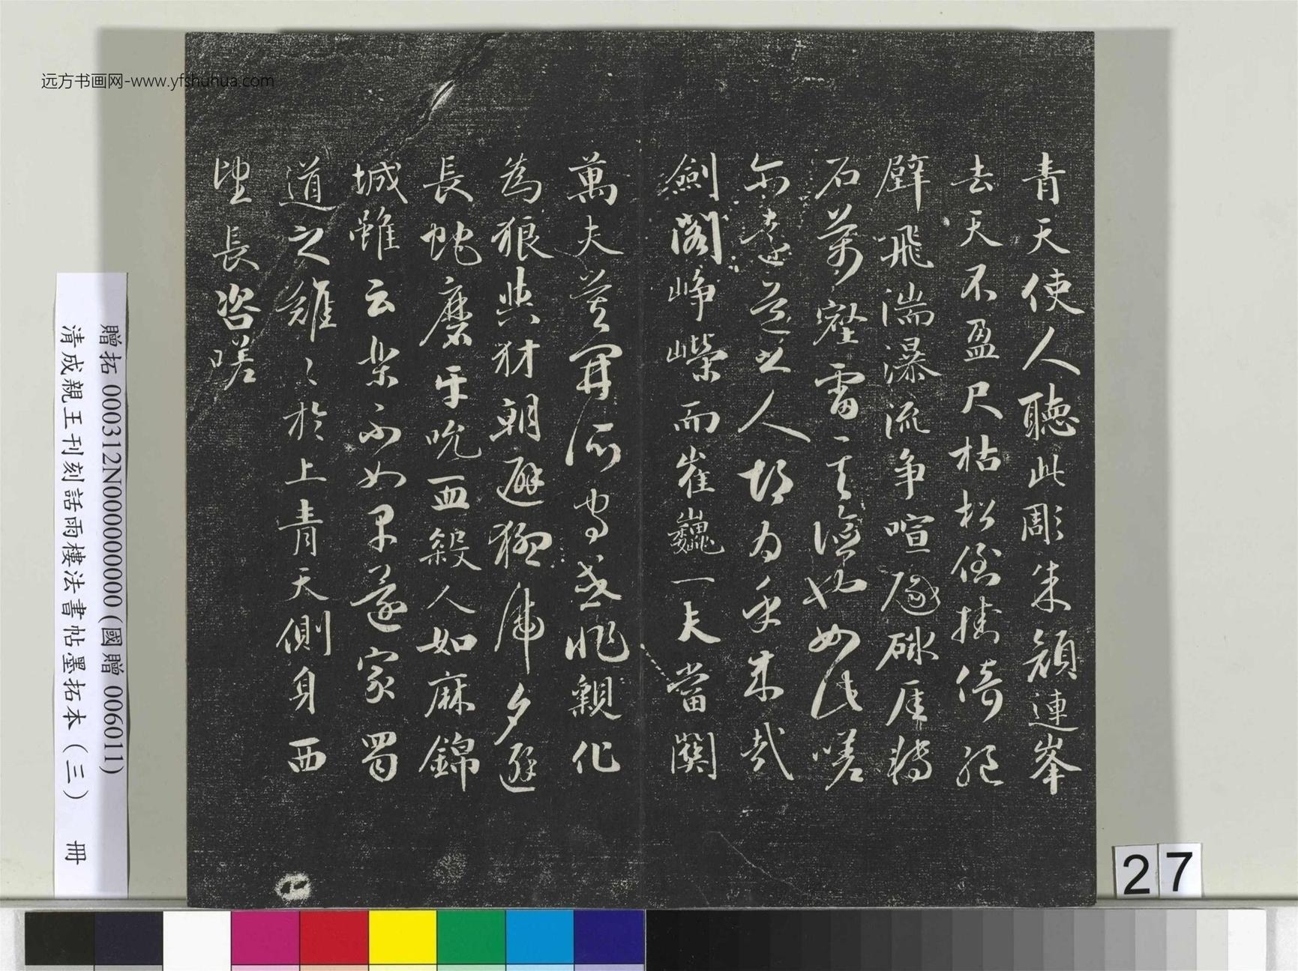 远方书画网-www.yfshuhua.com
青天使人聽此彫朱顏連峯
去天不盈尺枯松倒挂倚絕
壁飛湍瀑流爭喧豗砯厓轉
石萬壑雷其險也如此嗟
尔遠道之人胡为乎来哉
劍閣崢嶸而崔巍一夫當關
萬夫莫開所守或非親化
為狼與豺朝避猛虎夕避
長蛇磨牙吮血殺人如麻錦
城雖云樂不如早還家蜀
道之難〻於上青天側身西
望長咨嗟
贈拓 000312N000000000(國贈 006011)
清成親王刊刻話雨樓法書帖墨拓本（三） 冊
27